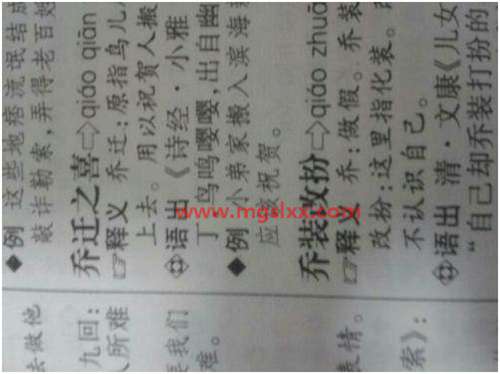 例 这些地痞流氓结成
敲诈勒索,弄得老百姓
乔迁之喜⇨qiáo qiān
释义 乔迁:原指鸟儿
上去。用以祝贺人搬
语出《诗经·小雅
丁,鸟鸣嘤嘤,出自幽
例 小弟家搬入滨海
应 祝贺。
乔装改扮⇨qiáo zhuā
释义 乔:做假。乔装
改扮:这里指化装。
不认识自己。
语出 清·文康《儿女
“自己却乔装打扮的
去做他
九回:
人所难
我们
难。
表情。
索》:
www.mgslxx.com